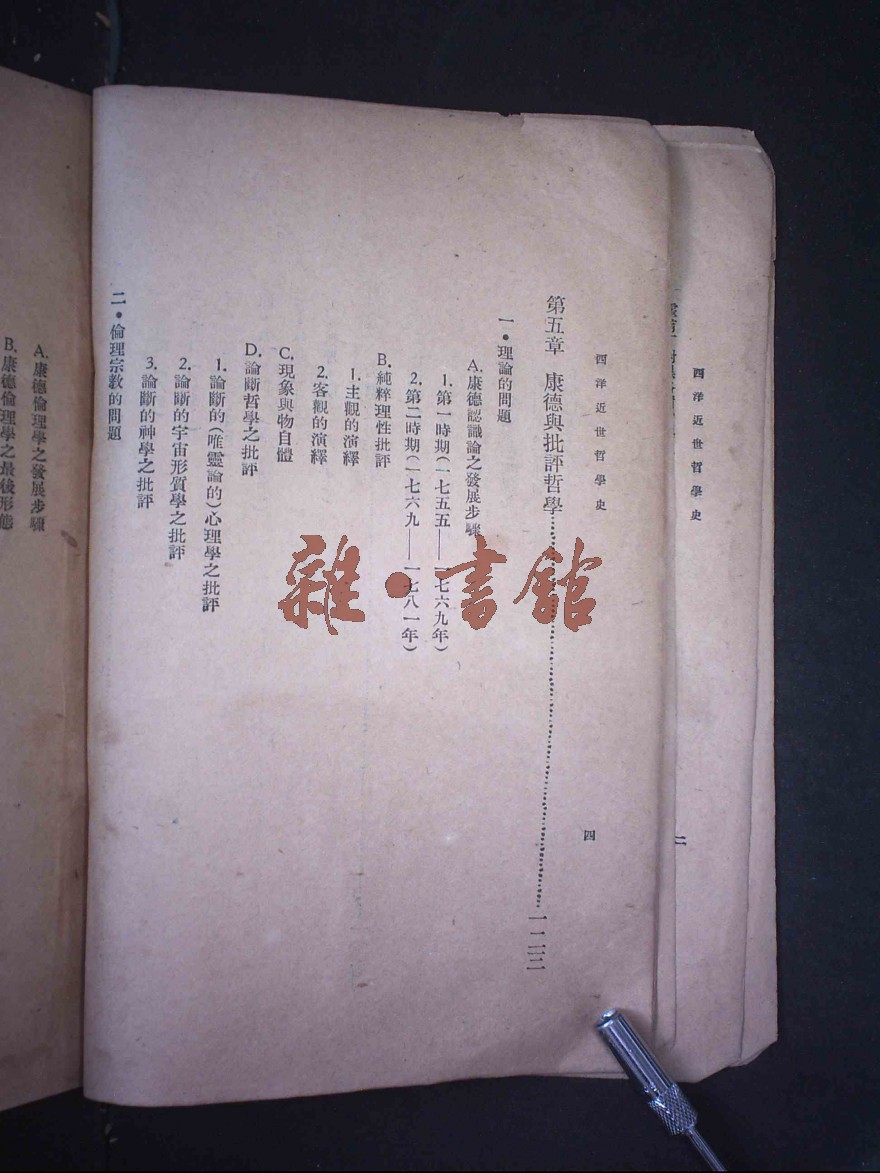 西洋近世哲學史
二
西洋近世哲學史
四
第五章 康德與批評哲學
一•理論的問題
A.康德認識論之發展步驟
1.第一時期(一七五五——一七六九年)
2.第二時期(一七六九——一七八一年)
B.純粹理性批評
1.主觀的演繹
2.客觀的演繹
C.現象與物自體
D.論斷哲學之批評
1.論斷的(唯靈論的)心理學之批評
2.論斷的宇宙形質學之批評
3.論斷的神學之批評
二•倫理宗教的問題
A.康德倫理學之發展步驟
B.康德倫理學之最後形態
雜•書館